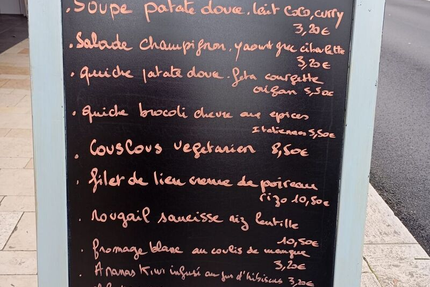 . Soupe patate douce. lait coco, curry
3,20€
. Salade champignon. yaourt grec ciboulette
3,20€
. quiche patate douce. feta courgette
origan 5,50€
. quiche brocoli chevre aux epices
Italiennes 5,50€
. Couscous vegetarien 8,50€
. filet de lieu creme de poireau
rizo 10,50€
. rougail saucisse riz lentille
10,50€
. fromage blanc au coulis de mangue
3,20€
. Ananas Kiwi infusé au jus d'hibiscus 3,20€